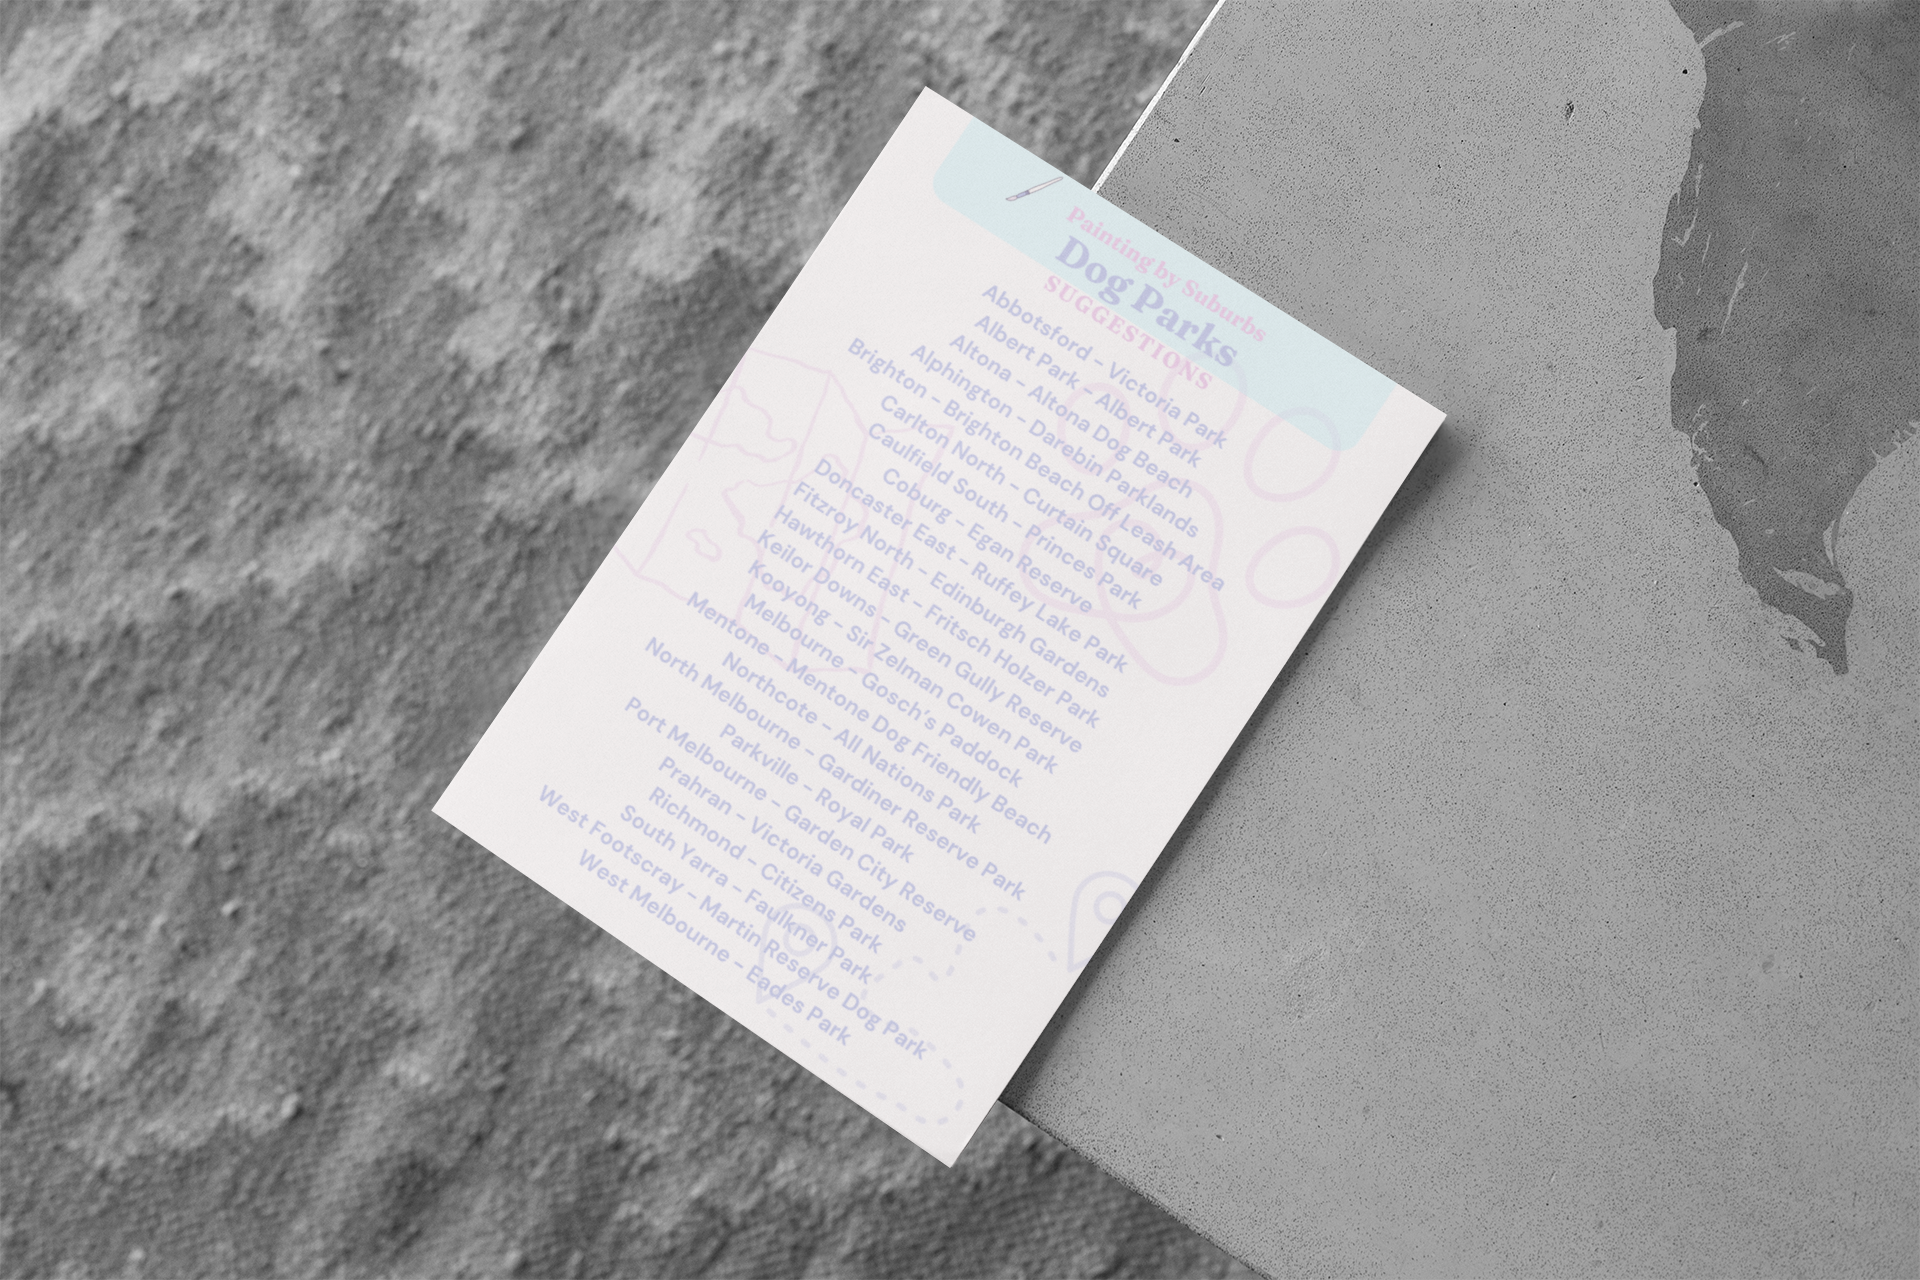 Painting by Suburbs
Dog Parks
SUGGESTIONS
Abbotsford – Victoria Park
Albert Park – Albert Park
Altona – Altona Dog Beach
Alphington – Darebin Parklands
Brighton – Brighton Beach Off Leash Area
Carlton North – Curtain Square
Caulfield South – Princes Park
Coburg – Egan Reserve
Doncaster East – Ruffey Lake Park
Fitzroy North – Edinburgh Gardens
Hawthorn East – Fritsch Holzer Park
Keilor Downs – Green Gully Reserve
Kooyong – Sir Zelman Cowen Park
Melbourne – Gosch's Paddock
Mentone – Mentone Dog Friendly Beach
Northcote – All Nations Park
North Melbourne – Gardiner Reserve Park
Parkville – Royal Park
Port Melbourne – Garden City Reserve
Prahran – Victoria Gardens
Richmond – Citizens Park
South Yarra – Faulkner Park
West Footscray – Martin Reserve Dog Park
West Melbourne – Eades Park